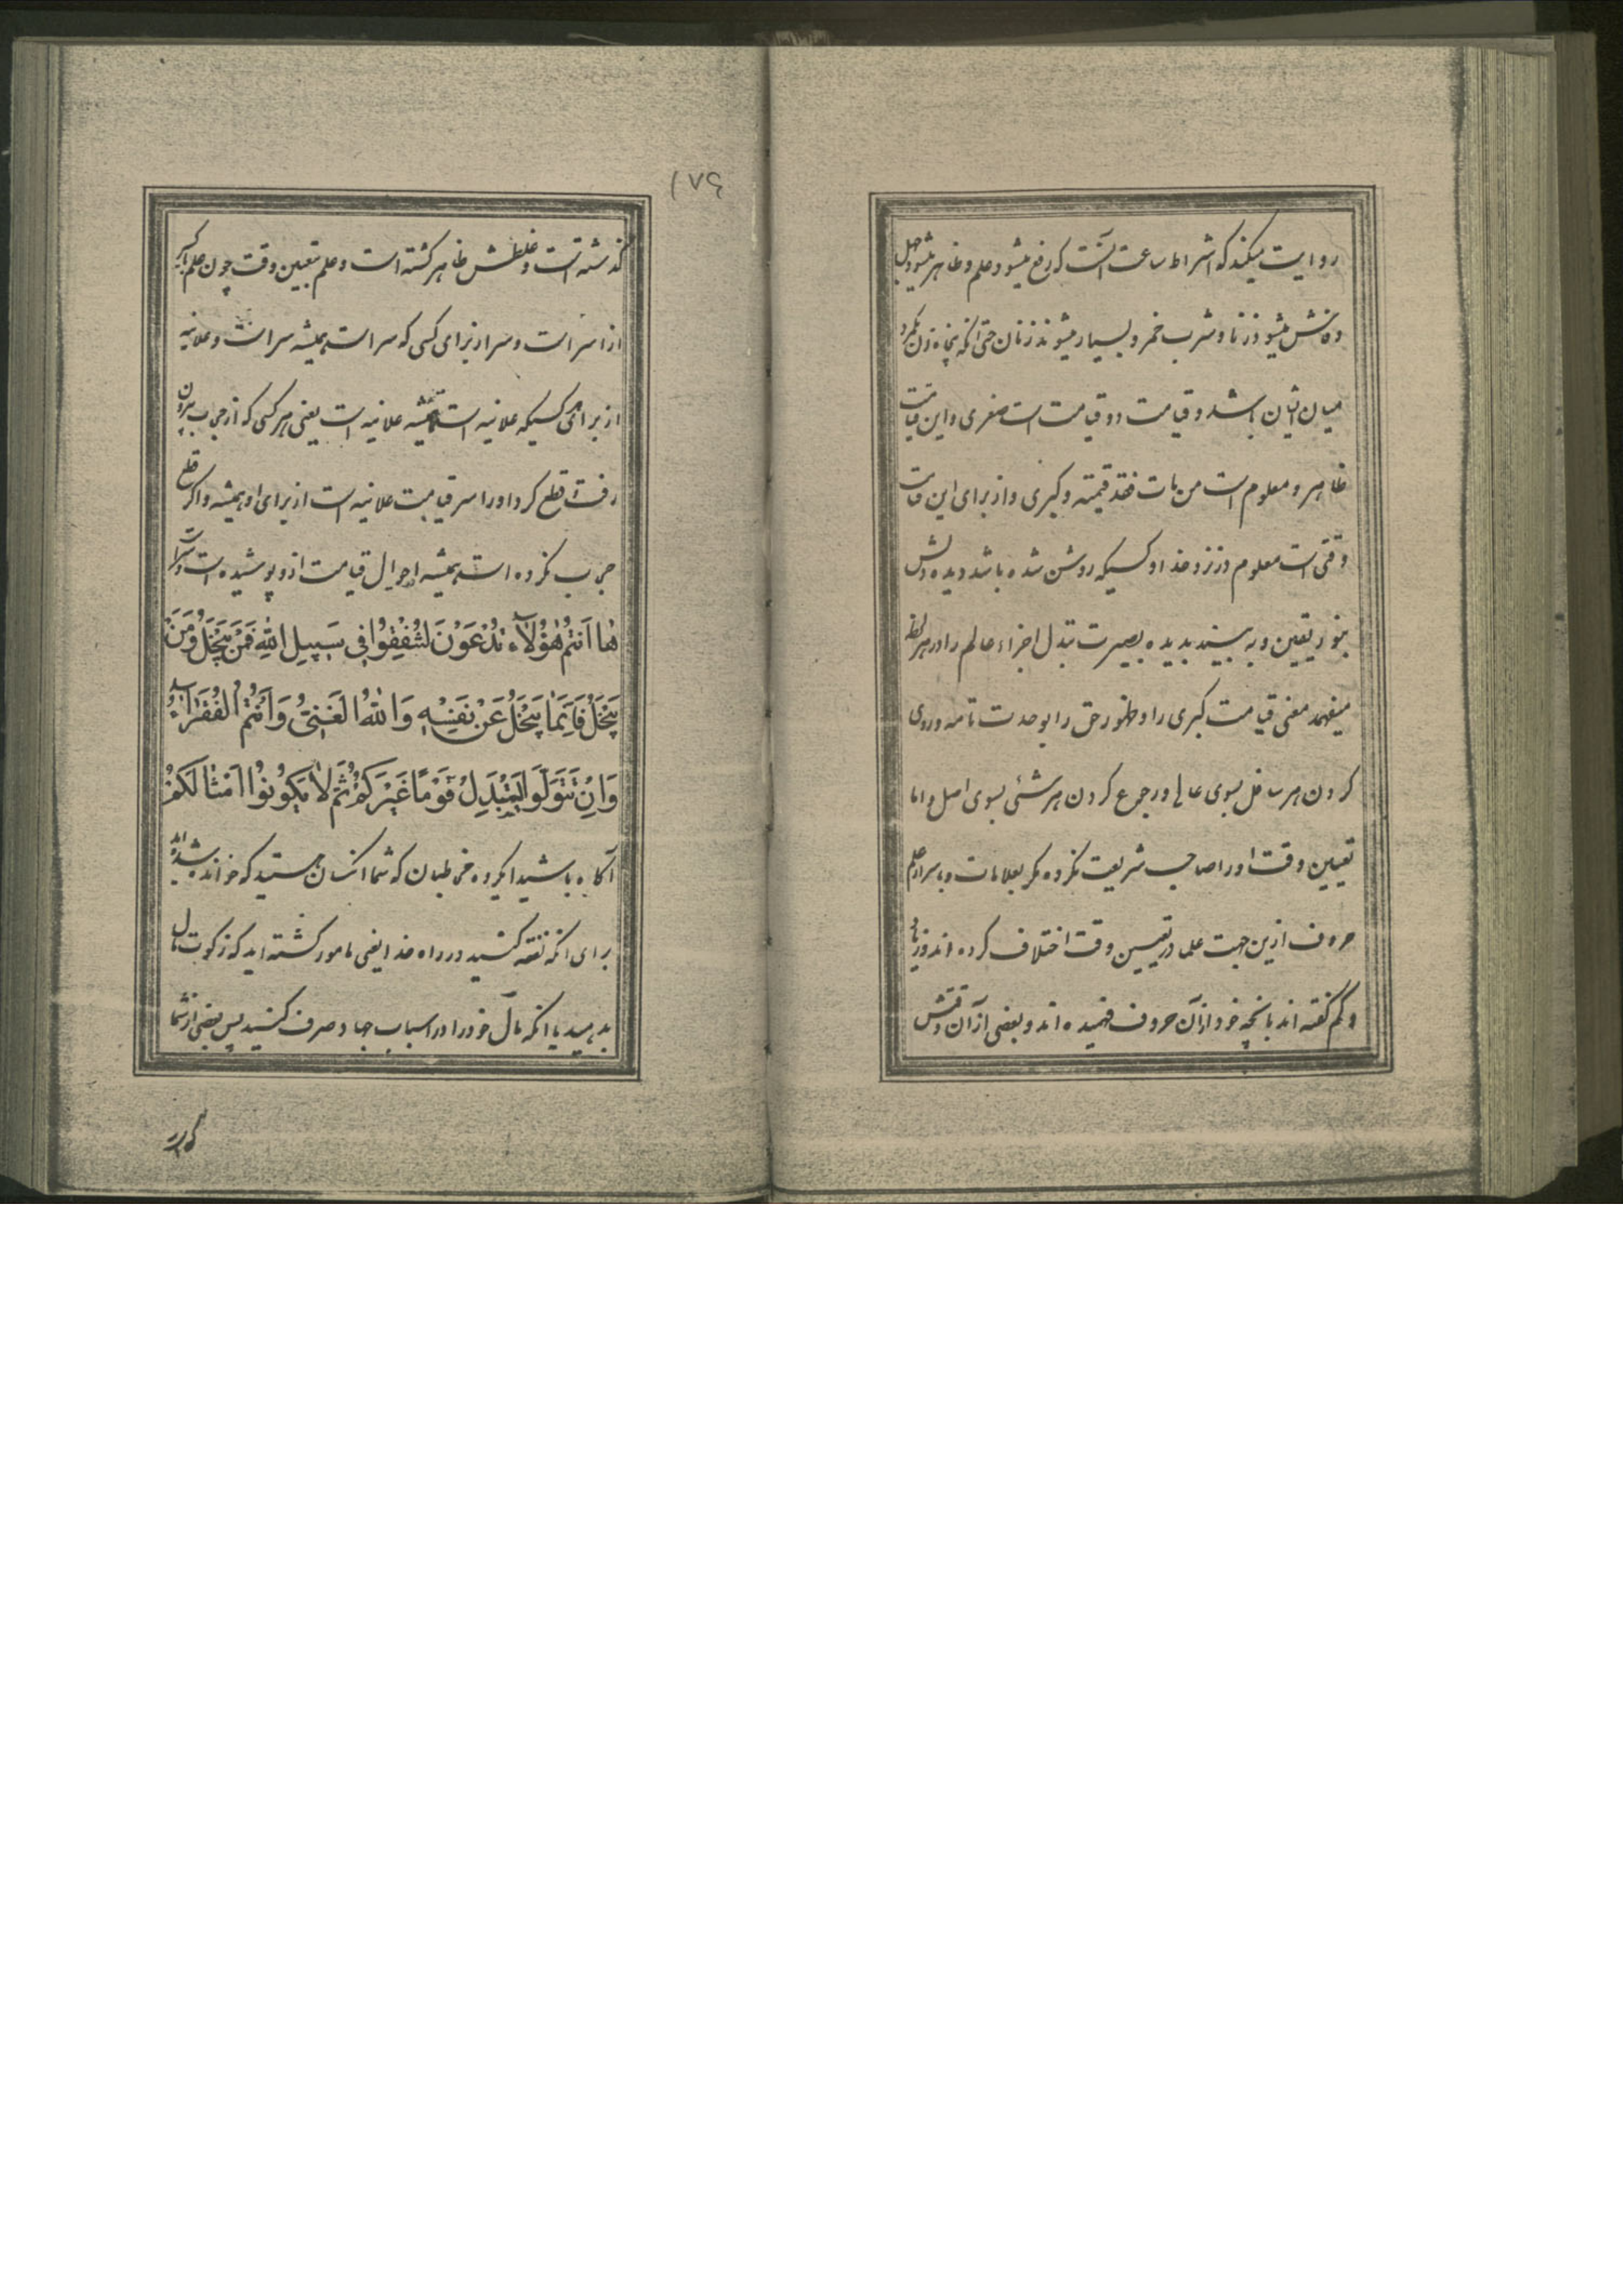 روایت میکند که اشراط ساعت آنست که رفع میشود علم و ظاهر میشود جهل
و فاش میشود زنا و شرب خمر و بسیار میشوند زنان حتی انکه پنجاه زن یکمرد
میان ایشان باشد و قیامت دو قیامت است صغری و این قیامت
ظاهر و معلوم است من مات فقد قیمته و کبری و از برای این قیامت
وقتی است معلوم در نزد خدا و کسیکه روشن شده باشد دیده دلش
بنور یقین و به بیند بدیده بصیرت تبدل اجزاء عالم را در هر لحظه
میفهمد معنی قیامت کبری را و ظهور حق را بوحدت تامه و روی
کردن هر سافل بسوی عالی و رجوع کردن هر شئی بسوی اصل و اما
تعیین وقت او را صاحب شریعت نکرده مکر بعلامات و باسرار علم
حروف ازین جهت علما در تعیین وقت اختلاف کرده اند و زیاد
و کم کفته اند بانچه خود از آن حروف فهمیده اند و بعضی از آن وقتش
۱۷۶
کذشته است و غلطش ظاهر کشته است و علم بتعیین وقت چون علم بکسیر
از اسرار است و سر از برای کسی که سر است همیشه سر است و علانیه
از برای کسیکه علانیه است همیشه علانیه است یعنی هر کسی که از حجاب بیرون
رفت قطع کرد او را سر قیامت علانیه است از برای او همیشه و اکر قطع
حجاب نکرده است همیشه احوال قیامت از و پوشیده است و سر است
هٰا اَنتُمْ هٰؤُلآءِ تُدْعَوْنَ لِتُنْفِقُوا فِی سَبِیلِ اللّٰهِ فَمِنْکُمْ مَنْ یَبْخَلُ وَمَنْ
یَبْخَلْ فَاِنَّمٰا یَبْخَلُ عَنْ نَفْسِهِ وَاللّٰهُ الْغَنِیُّ وَاَنْتُمُ الْفُقَرٰآءُ
وَاِنْ تَتَوَلَّوْا یَسْتَبْدِلْ قَوْمًا غَیْرَکُمْ ثُمَّ لاٰ یَکُونُوا اَمْثٰالَکُمْ
آکاه باشید ایکروه مخاطبان که شما انکسان هستید که خوانده شده اید
برای انکه نفقه کنید در راه خدا یعنی مامور کشته اید که زکوت مال
بدهید یا انکه مال خود را در اسباب جهاد صرف کنید پس بعضی از شما